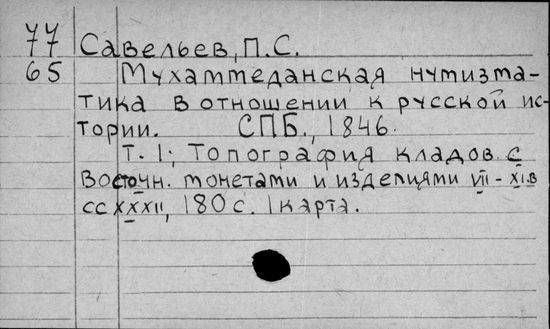 77 Савельев, П. С.
65 Мухаммеданская нумизма-
тика в отношении к русской ис-
тории. СПБ., 1846.
Т. 1; Топография кладов с
восточн. монетами и изделиями VII - XI в
CCXXXII, 180 с. 1 карта.